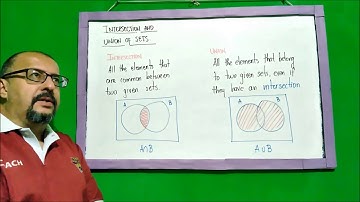 INTERSECTION AND
UNION OF SETS
INTERSECTION
All the elements that
are common between
two given sets.
A
B
A∩B
UNION
All the elements that belong
to two given sets, even if
they have an intersection
A
B
A∪B
ACH